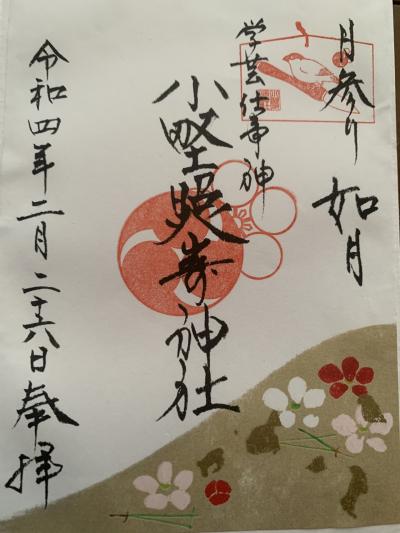 月参り 如月
学芸仕事神
小野照崎神社
令和四年二月二十六日奉拝